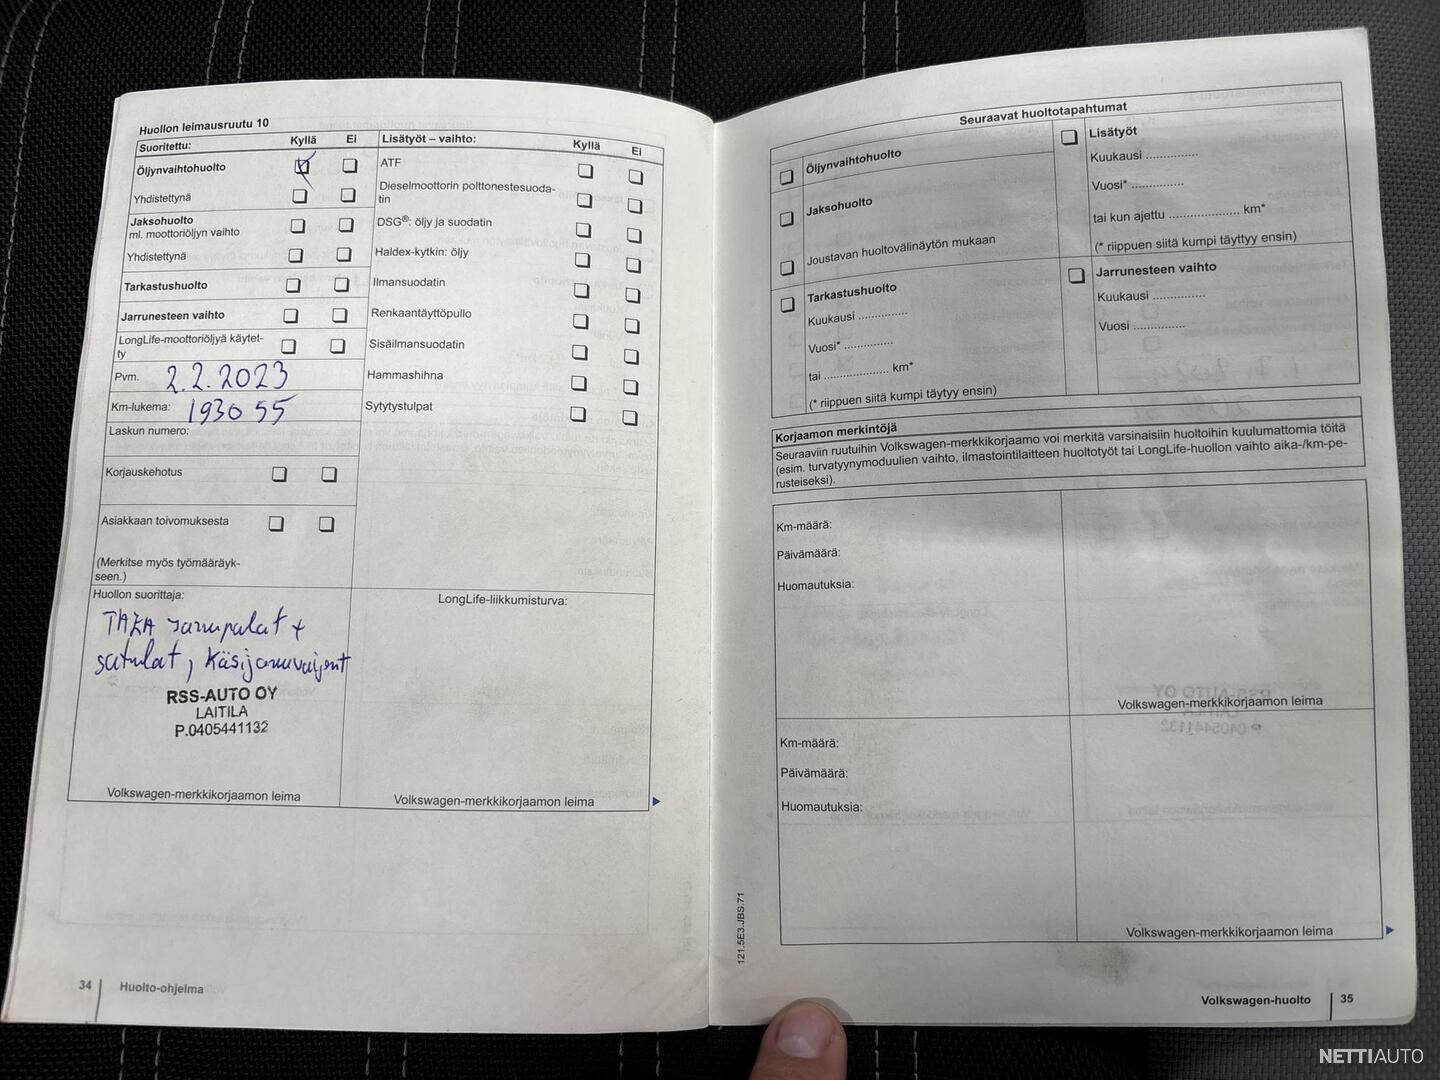 Huollon leimausruutu 10
Suoritettu: Kyllä Ei
Öljynvaihtohuolto
Yhdistettynä
Jaksohuolto
ml. moottoriöljyn vaihto
Yhdistettynä
Tarkastushuolto
Jarrunesteen vaihto
LongLife-moottoriöljyä käytet-
ty
Pvm. 2.2.2023
Km-lukema: 193055
Laskun numero:
Korjauskehotus
Asiakkaan toivomuksesta
(Merkitse myös työmääräyk-
seen.)
Huollon suorittaja:
TAKA jarrupalat +
satulat, Käsijarruvaijerit
RSS-AUTO OY
LAITILA
P.0405441132
Volkswagen-merkkikorjaamon leima
Lisätyöt – vaihto: Kyllä Ei
ATF
Dieselmoottorin polttonestesuoda-
tin
DSG®: öljy ja suodatin
Haldex-kytkin: öljy
Ilmansuodatin
Renkaantäyttöpullo
Sisäilmansuodatin
Hammashihna
Sytytystulpat
LongLife-liikkumisturva:
Volkswagen-merkkikorjaamon leima
34 Huolto-ohjelma
Seuraavat huoltotapahtumat
Öljynvaihtohuolto
Jaksohuolto
Joustavan huoltovälinäytön mukaan
Tarkastushuolto
Kuukausi ..............
Vuosi* ..............
tai ................... km*
(* riippuen siitä kumpi täytyy ensin)
Lisätyöt
Kuukausi ...............
Vuosi* ...............
tai kun ajettu .................... km*
(* riippuen siitä kumpi täyttyy ensin)
Jarrunesteen vaihto
Kuukausi ...............
Vuosi ...............
Korjaamon merkintöjä
Seuraaviin ruutuihin Volkswagen-merkkikorjaamo voi merkitä varsinaisiin huoltoihin kuulumattomia töitä
(esim. turvatyynymoduulien vaihto, ilmastointilaitteen huoltotyöt tai LongLife-huollon vaihto aika-/km-pe-
rusteiseksi).
Km-määrä:
Päivämäärä:
Huomautuksia:
Volkswagen-merkkikorjaamon leima
Km-määrä:
Päivämäärä:
Huomautuksia:
Volkswagen-merkkikorjaamon leima
121.5E3.JBS.71
Volkswagen-huolto 35
NETTIAUTO